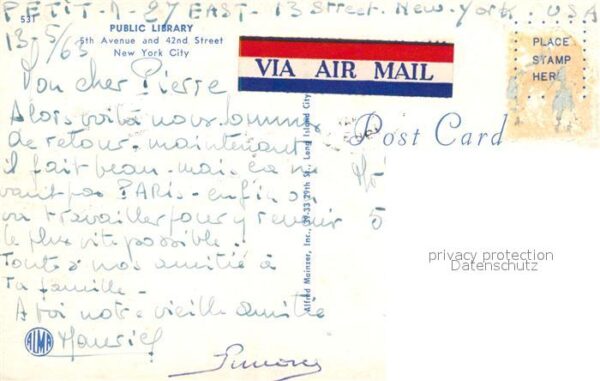 PETIT-1-27 EAST-13 Street-New-York-USA
531
PUBLIC LIBRARY
5th Avenue and 42nd Street
New York City
13-5/63
VIA AIR MAIL
PLACE
STAMP
HERE
Mon cher Pierre
Alors voilà nous sommes
de retour-maintenant
il fait beau-mais ça ne
vaut pas PARIS-enfin on
va travailler pour y revenir
le plus vite possible-
Toute nos amitié à
Ta famille-
A toi notre vieille amitié
Maurice
Simone
ALMA
Alfred Mainzer, Inc., 39-33 29th St., Long Island City
Post Card
5
privacy protection
Datenschutz